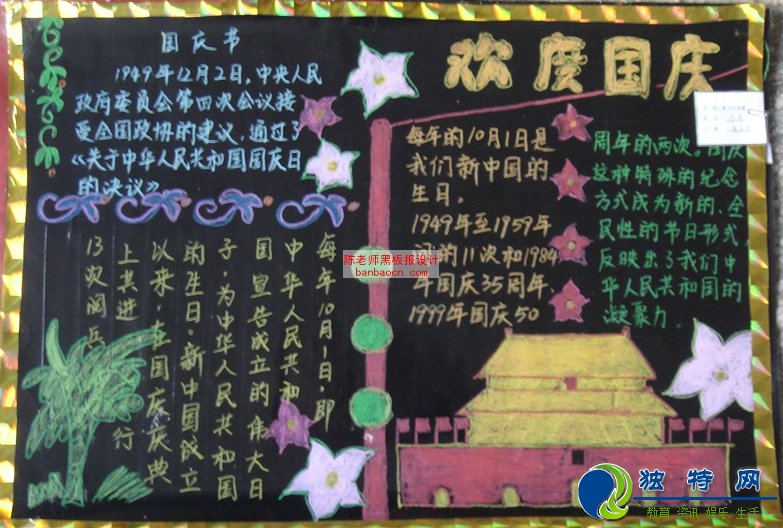 国庆节
1949年12月2日,中央人民
政府委员会第四次会议接
受全国政协的建议,通过了
《关于中华人民共和国国庆日
的决议》
每年10月1日,即
中华人民共和
国宣告成立的伟大日
子,为中华人民共和国
的生日,新中国成立
以来,在国庆庆典
上共进行
13次阅兵
欢度国庆
每年的10月1日是
我们新中国的
生日。
1949年至1959年
的11次和1984
年国庆35周年、
1999年国庆50
周年的两次。国庆
这种特殊的纪念
方式成为新的、全
民性的节日形式,
反映出了我们中
华人民共和国的
凝聚力。
陈老师黑板报设计
banbaocn.com
独特网
教育 资讯 娱乐 生活